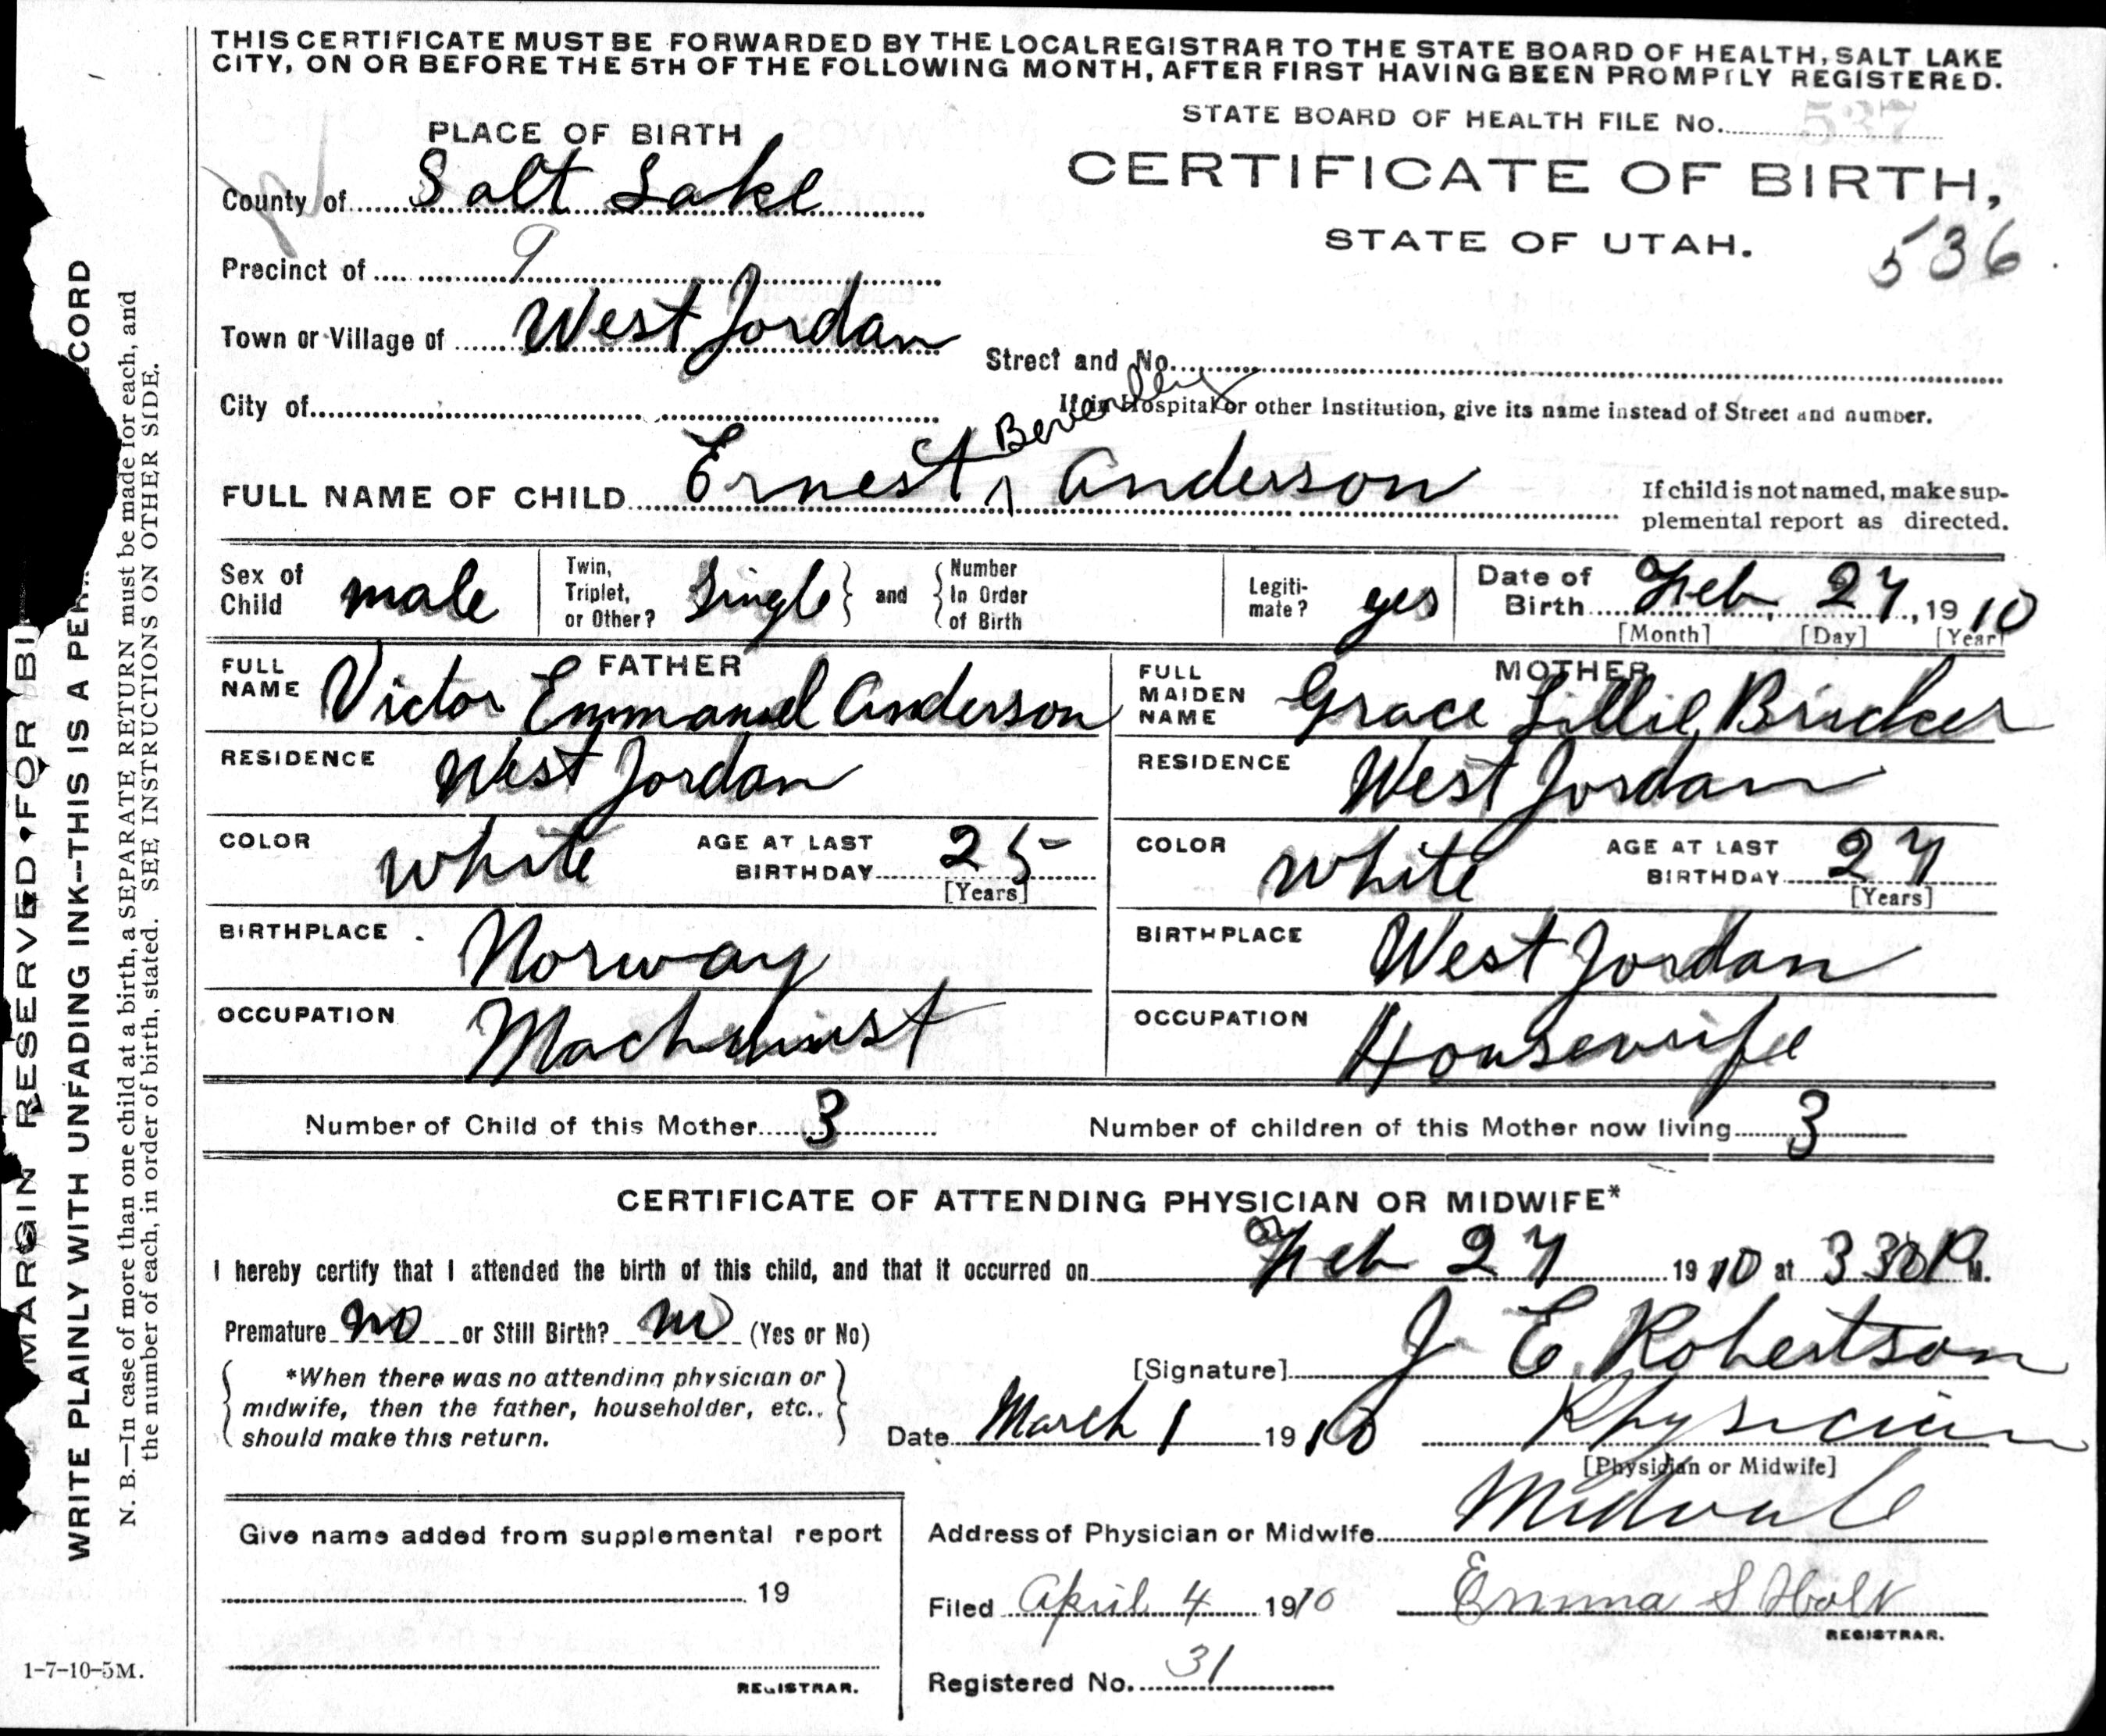 THIS CERTIFICATE MUST BE FORWARDED BY THE LOCAL REGISTRAR TO THE STATE BOARD OF HEALTH, SALT LAKE
CITY, ON OR BEFORE THE 5TH OF THE FOLLOWING MONTH, AFTER FIRST HAVING BEEN PROMPTLY REGISTERED.
STATE BOARD OF HEALTH FILE No. 537
PLACE OF BIRTH
CERTIFICATE OF BIRTH,
STATE OF UTAH.
536
County of Salt Lake
Precinct of 9
Town or Village of West Jordan
Street and No.
City of
If in Hospital or other Institution, give its name instead of Street and number.
Beverley
FULL NAME OF CHILD Ernest Anderson
If child is not named, make sup-
plemental report as directed.
Sex of Child male
Twin, Triplet, or Other? Single and Number In Order of Birth
Legiti-mate? yes
Date of Birth Feb 27, 1910
[Month] [Day] [Year]
FATHER
FULL NAME Victor Emmanuel Anderson
RESIDENCE West Jordan
COLOR white AGE AT LAST BIRTHDAY 25
[Years]
BIRTHPLACE Norway
OCCUPATION Machinist
MOTHER
FULL MAIDEN NAME Grace Lillie
RESIDENCE West Jordan
COLOR white AGE AT LAST BIRTHDAY 27
[Years]
BIRTHPLACE West Jordan
OCCUPATION Housewife
Number of Child of this Mother 3 Number of children of this Mother now living 3
CERTIFICATE OF ATTENDING PHYSICIAN OR MIDWIFE*
I hereby certify that I attended the birth of this child, and that it occurred on Feb 27 1910 at 330 P M.
Premature no or Still Birth? no (Yes or No)
*When there was no attending physician or
midwife, then the father, householder, etc.,
should make this return.
[Signature] J E Robertson
Date March 1 1910 Physician
[Physician or Midwife]
Address of Physician or Midwife Midvale
Give name added from supplemental report
19
REGISTRAR.
Filed April 4 1910 Emma S Holt
REGISTRAR.
Registered No. 31
1-7-10-5M.
MARGIN RESERVED FOR BI
WRITE PLAINLY WITH UNFADING INK--THIS IS A PER CORD
N. B.—In case of more than one child at a birth, a SEPARATE RETURN must be made for each, and
the number of each, in order of birth, stated. SEE INSTRUCTIONS ON OTHER SIDE.